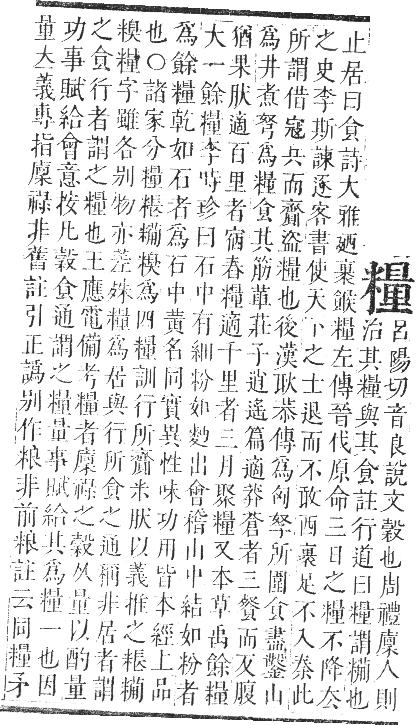 糧
呂陽切音良說文穀也周禮廩人則
治其糧與其食註行道曰糧謂糒也
止居曰食詩大雅廼裹餱糧左傳晉伐原命三日之糧不降去
之史李斯諫逐客書使天下之士退而不敢西裹足不入秦此
所謂借寇兵而齎盜糧也後漢耿恭傳爲匈奴所圍食盡鑿山
爲井煮弩爲糧食其筋革莊子逍遙篇適莽蒼者三餐而反腹
猶果肰適百里者宿舂糧適千里者三月聚糧又本草禹餘糧
大一餘糧李時珍曰石中有細粉如麪出會稽山中結如粉者
爲餘糧乾如石者爲石中黃名同實異性味功用皆本經上品
也〇諸家分糧粻糒糗爲四糧訓行所齎米肰以義推之粻糒
糗糧字雖各別物亦差殊糧爲居與行所食之通稱非居者謂
之食行者謂之糧也王應電備考糧者廩祿之穀从量以酌量
功事賦給會意按凡穀食通謂之糧量事賦給其爲糧一也因
量大義專指廩祿非舊註引正譌別作粮非前粮註云同糧矛